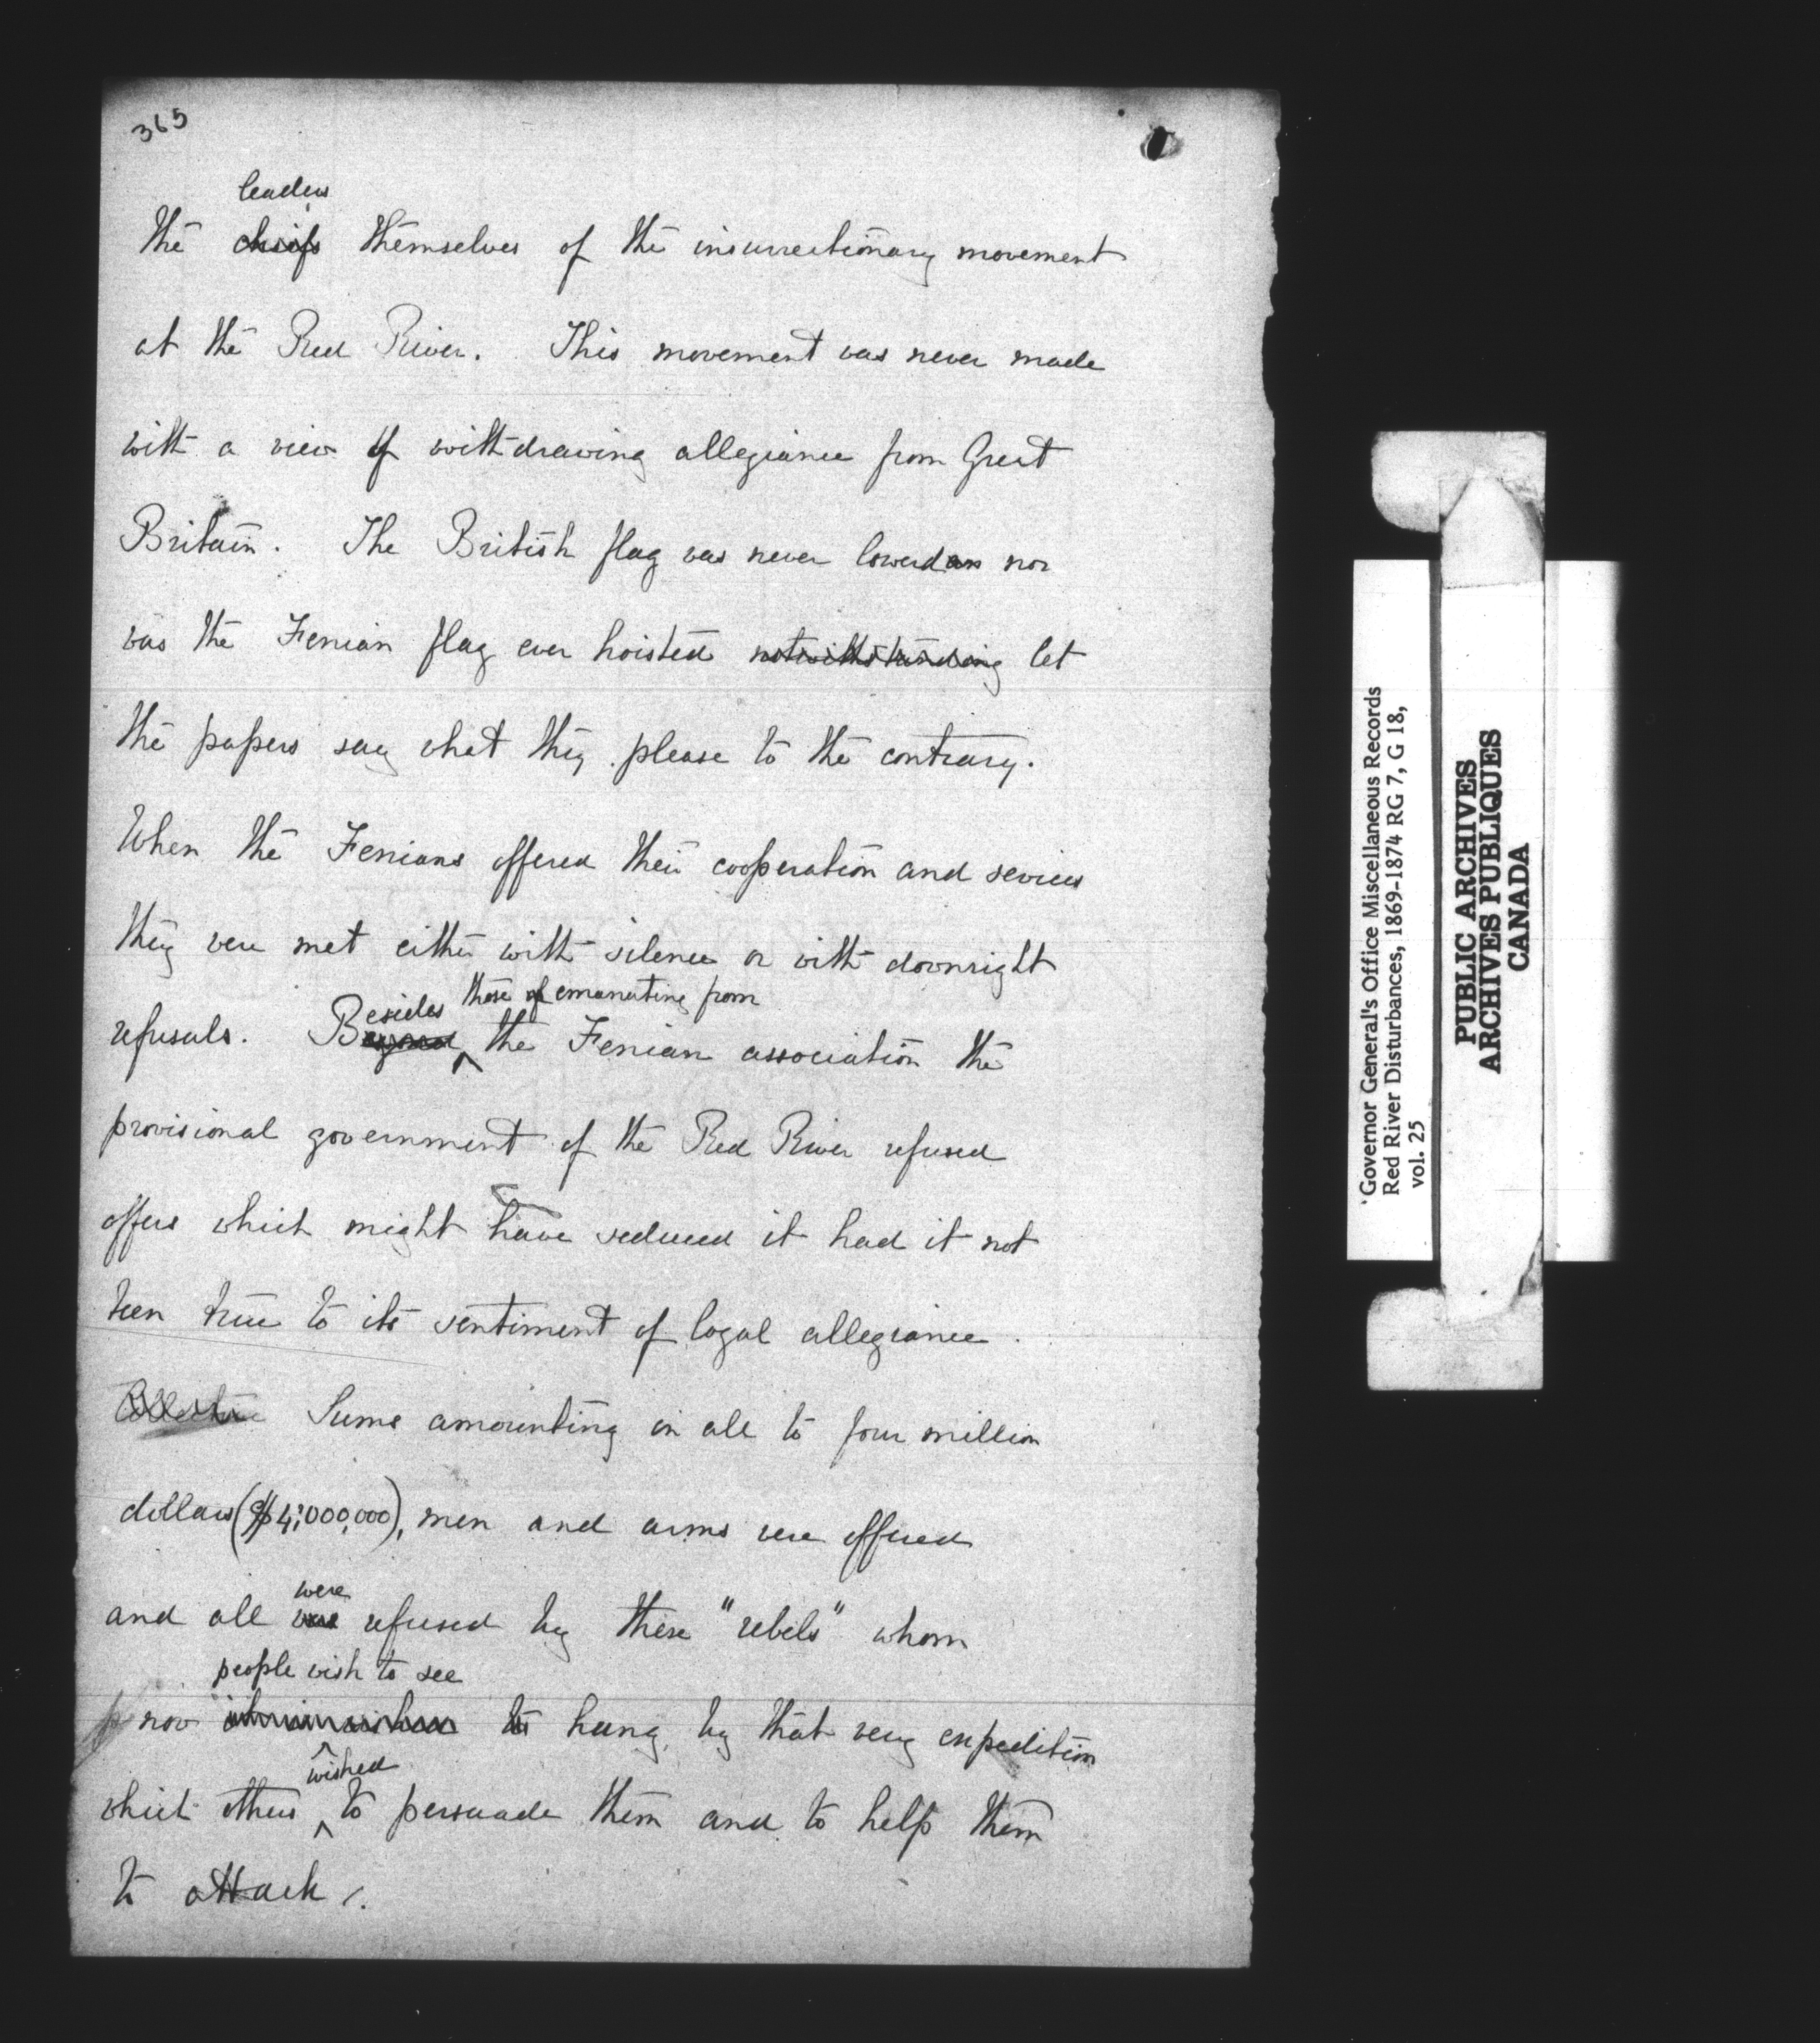 365
leaders
the chiefs themselves of the insurrectionary movement
at the Red River. This movement was never made
with a view of withdrawing allegiance from Great
Britain. The British flag was never lowered nor
was the Fenian flag ever hoisted notwithstanding let
the papers say what they please to the contrary.
When the Fenians offered their cooperation and sevices
they were met either with silence or with downright
esides those of emanating from
refusals. Beyond ^ the Fenian association the
provisional government of the Red River refused
offers which might have seduced it had it not
been true to its sentiment of loyal allegiance.
Sums amounting in all to four million
dollars ($4,000,000), men and arms were offered
were
and all was refused by these "rebels" whom
people wish to see
now to hung, by that very expedition
wished
which others ^ to persuade them and to help them
to attack.
'Governor General's Office Miscellaneous Records
Red River Disturbances, 1869-1874 RG 7, G 18,
vol. 25
PUBLIC ARCHIVES
ARCHIVES PUBLIQUES
CANADA